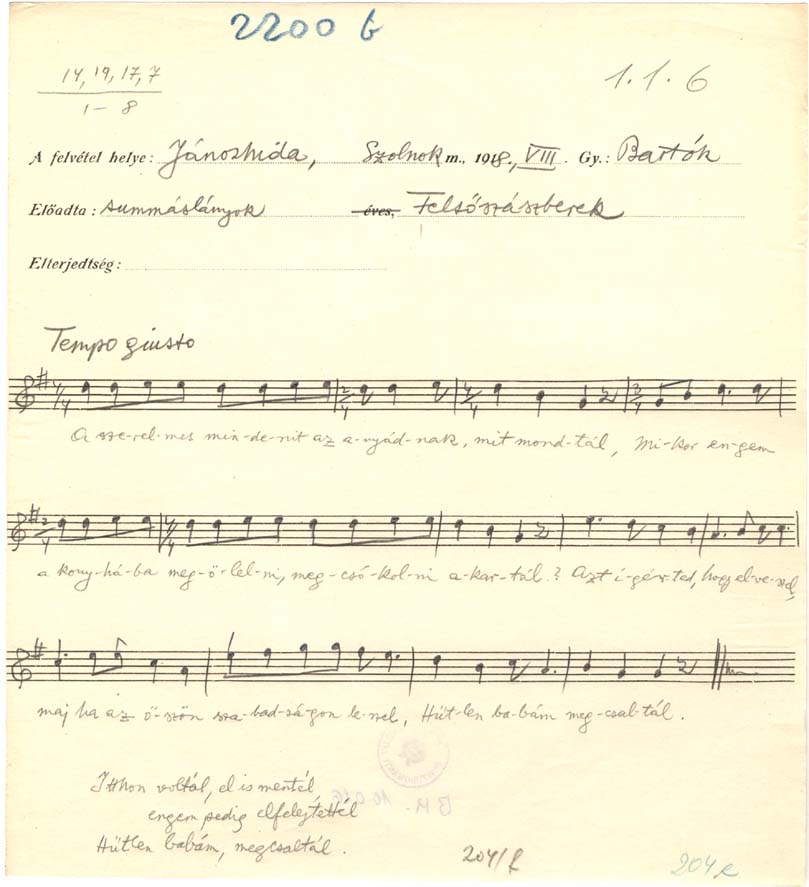 2200 b
14, 19, 17, 7
1 – 8
1. 1. 6
A felvétel helye: Jánoshida, Szolnok m., 1918., VIII. Gy.: Bartók
Előadta: summáslányok éves, Felsőszászberek
Elterjedtség:
Tempo giusto
A sze-rel-mes min-de-nit az a-nyád-nak, mit mond-tál, Mi-kor en-gem
a kony-há-ba meg-ö-lel-ni, meg-csó-kol-ni a-kar-tál? Azt i-gér-ted, hogy el-ve-szel,
maj ha az ő-szön sza-bad-sá-gon le-szel, Hüt-len ba-bám meg-csal-tál.
Itthon voltál, el is mentél
engem pedig elfelejtettél
Hütlen babám, megcsaltál.
204/f
204 e